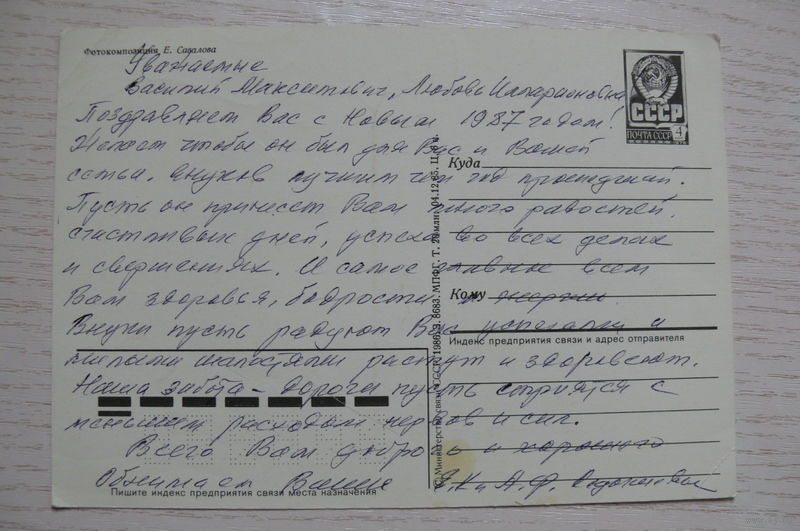 Фотокомпозиция Е. Савалова
Уважаемые
Василий Максимович, Любовь Илларионовна
Поздравляем Вас с Новым 1987 годом!
Желаем чтобы он был для Вас и Вашей
внуков лучшим чем год прошедший.
Пусть он принесет Вам много радостей,
счастливых дней, успеха во всех делах
и свершениях. И самое главное всем
Вам здоровья, бодрости и энергии.
Внуки пусть радуют Вас успехами и
милыми шалостями растут и здоровеют.
Наша забота - дороги пусть строятся с
меньшим расходом нервов и сил.
Всего Вам доброго и хорошего
Обнимаем Ваши
и А.Ф.
СССР
ПОЧТА СССР 4
Куда
Кому
Индекс предприятия связи и адрес отправителя
Пишите индекс предприятия связи места назначения
Министерство связи СССР, 1986. З. 8683. МПФГ. Т. 20 млн. 04.12.85. Ц.